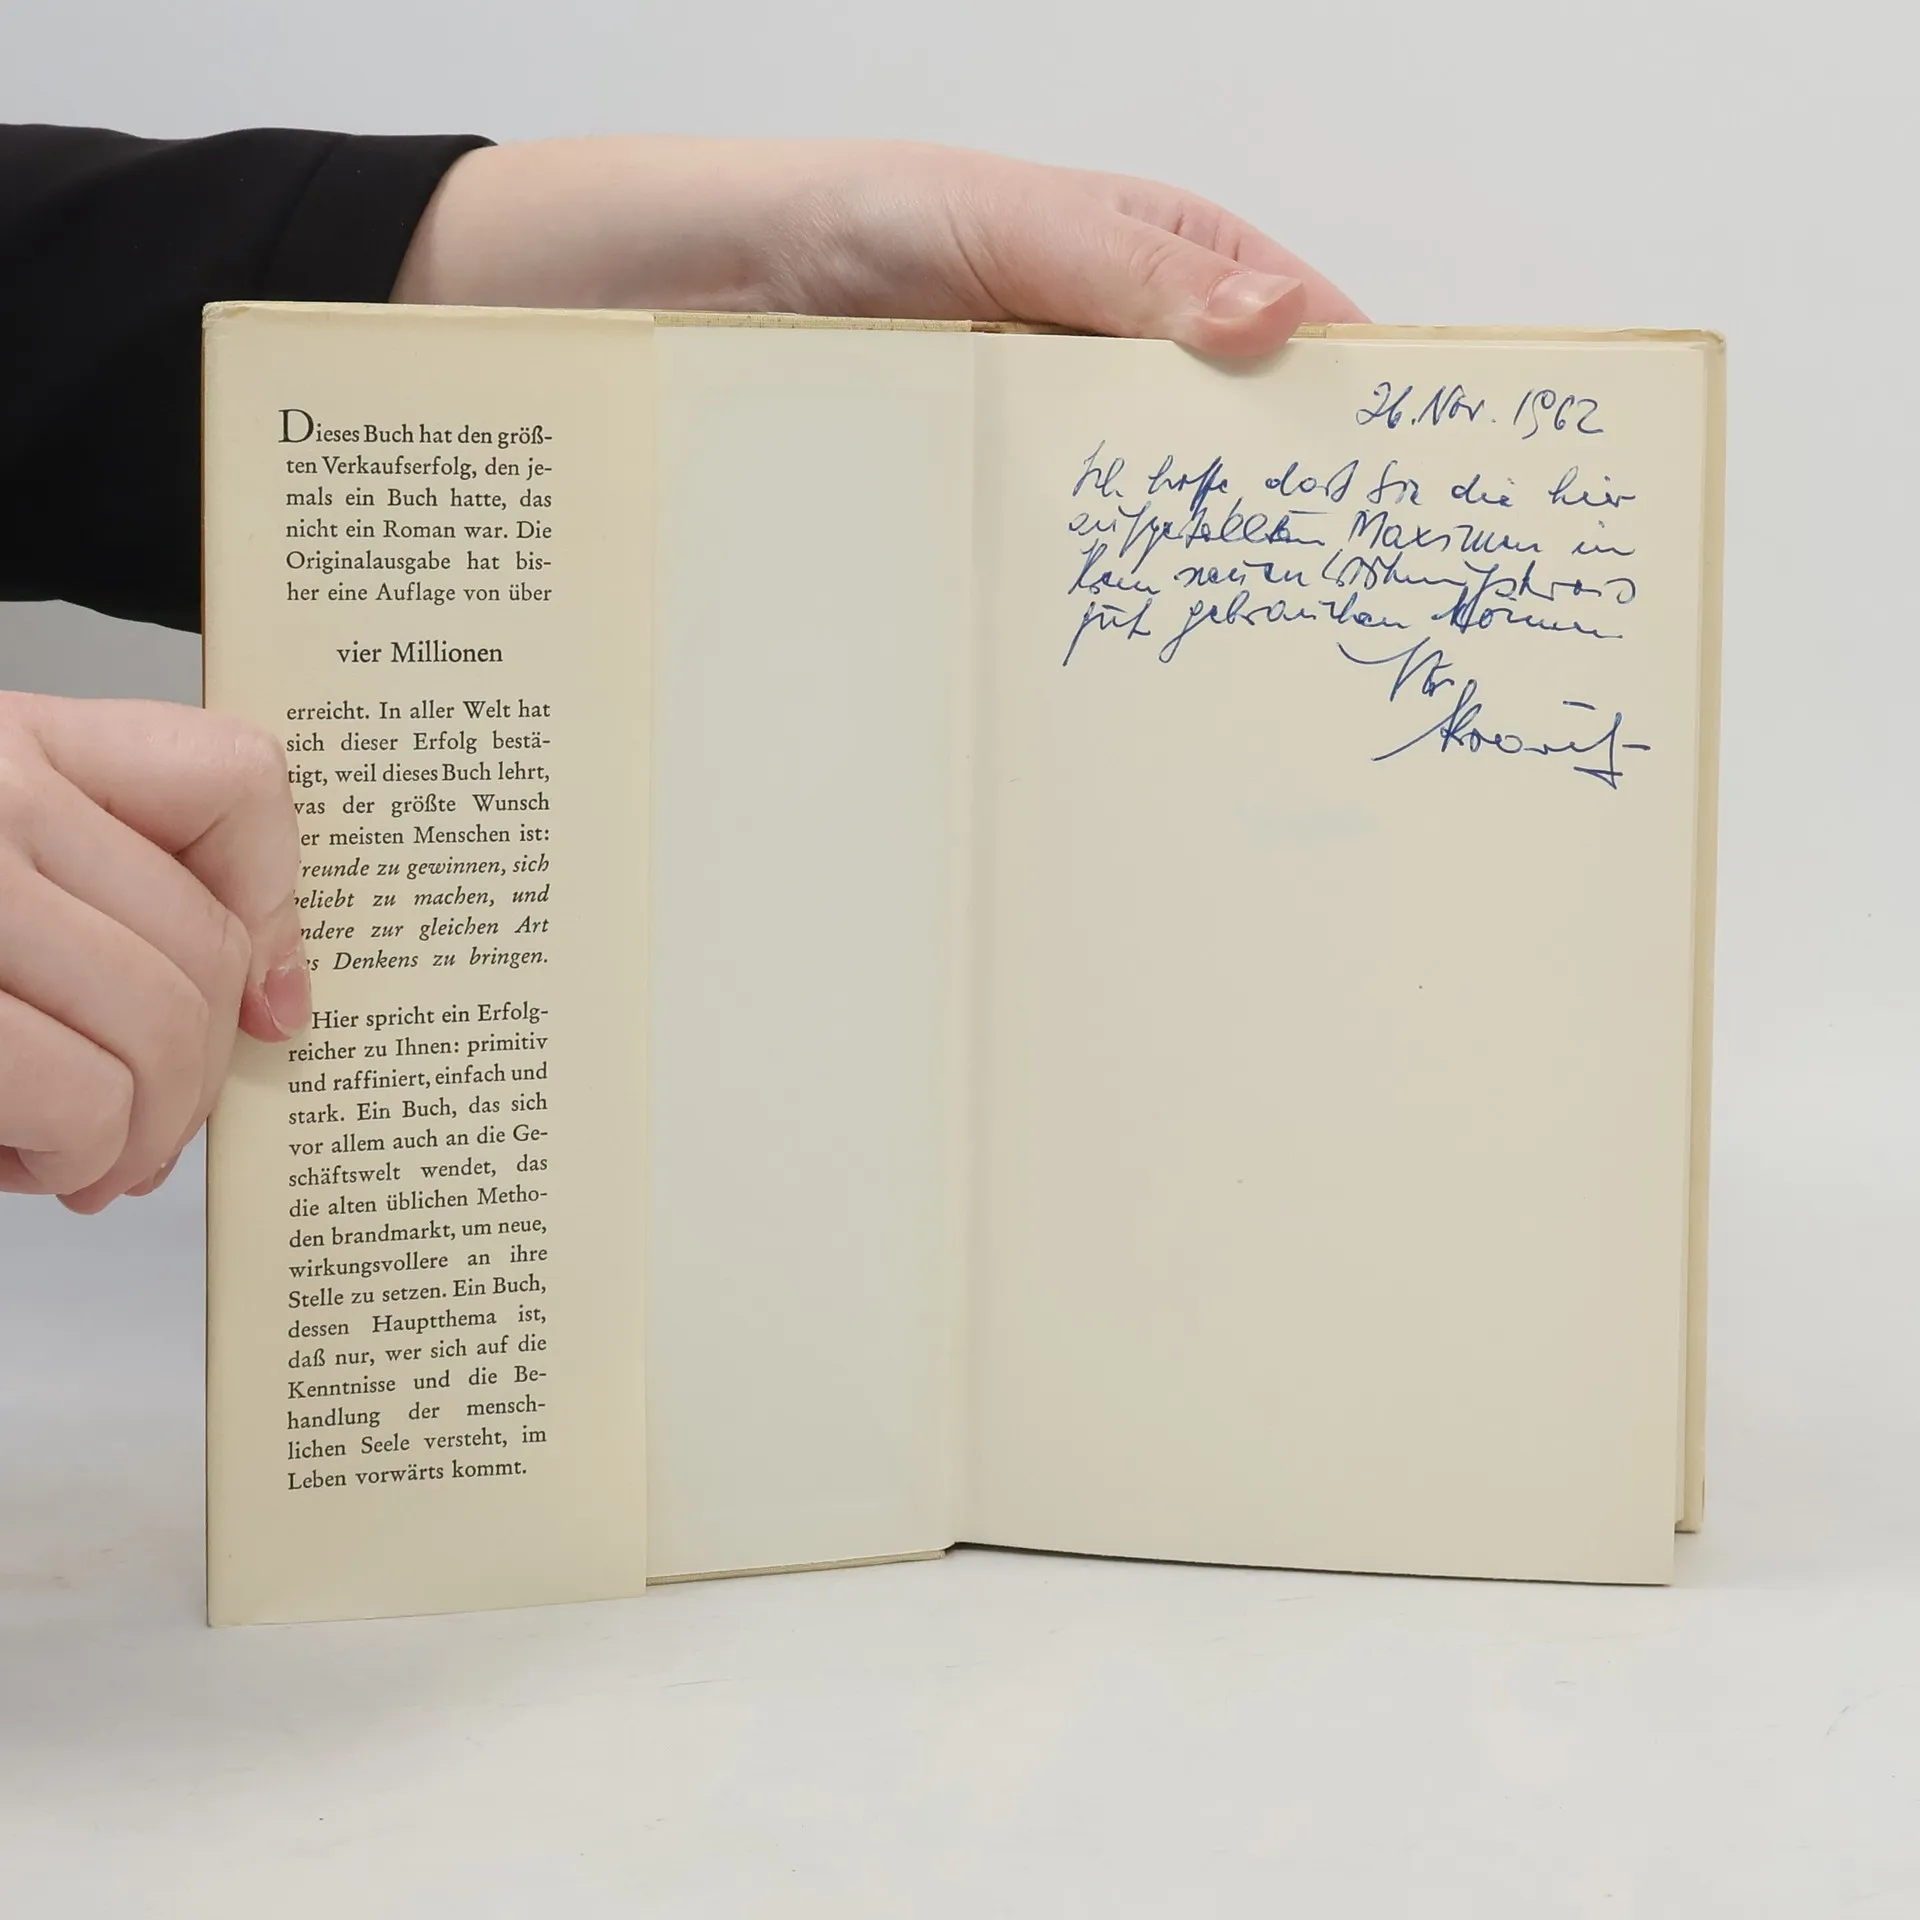 Dieses Buch hat den größ-
ten Verkaufserfolg, den je-
mals ein Buch hatte, das
nicht ein Roman war. Die
Originalausgabe hat bis-
her eine Auflage von über
vier Millionen
erreicht. In aller Welt hat
sich dieser Erfolg bestä-
tigt, weil dieses Buch lehrt,
was der größte Wunsch
er meisten Menschen ist:
reunde zu gewinnen, sich
beliebt zu machen, und
ndere zur gleichen Art
es Denkens zu bringen.
Hier spricht ein Erfolg-
reicher zu Ihnen: primitiv
und raffiniert, einfach und
stark. Ein Buch, das sich
vor allem auch an die Ge-
schäftswelt wendet, das
die alten üblichen Metho-
den brandmarkt, um neue,
wirkungsvollere an ihre
Stelle zu setzen. Ein Buch,
dessen Hauptthema ist,
daß nur, wer sich auf die
Kenntnisse und die Be-
handlung der mensch-
lichen Seele versteht, im
Leben vorwärts kommt.
26. Nov. 1962
Ich hoffe, daß Sie die hier
aufgestellten Maximen in
neuen
gut gebrauchen können
Ihr